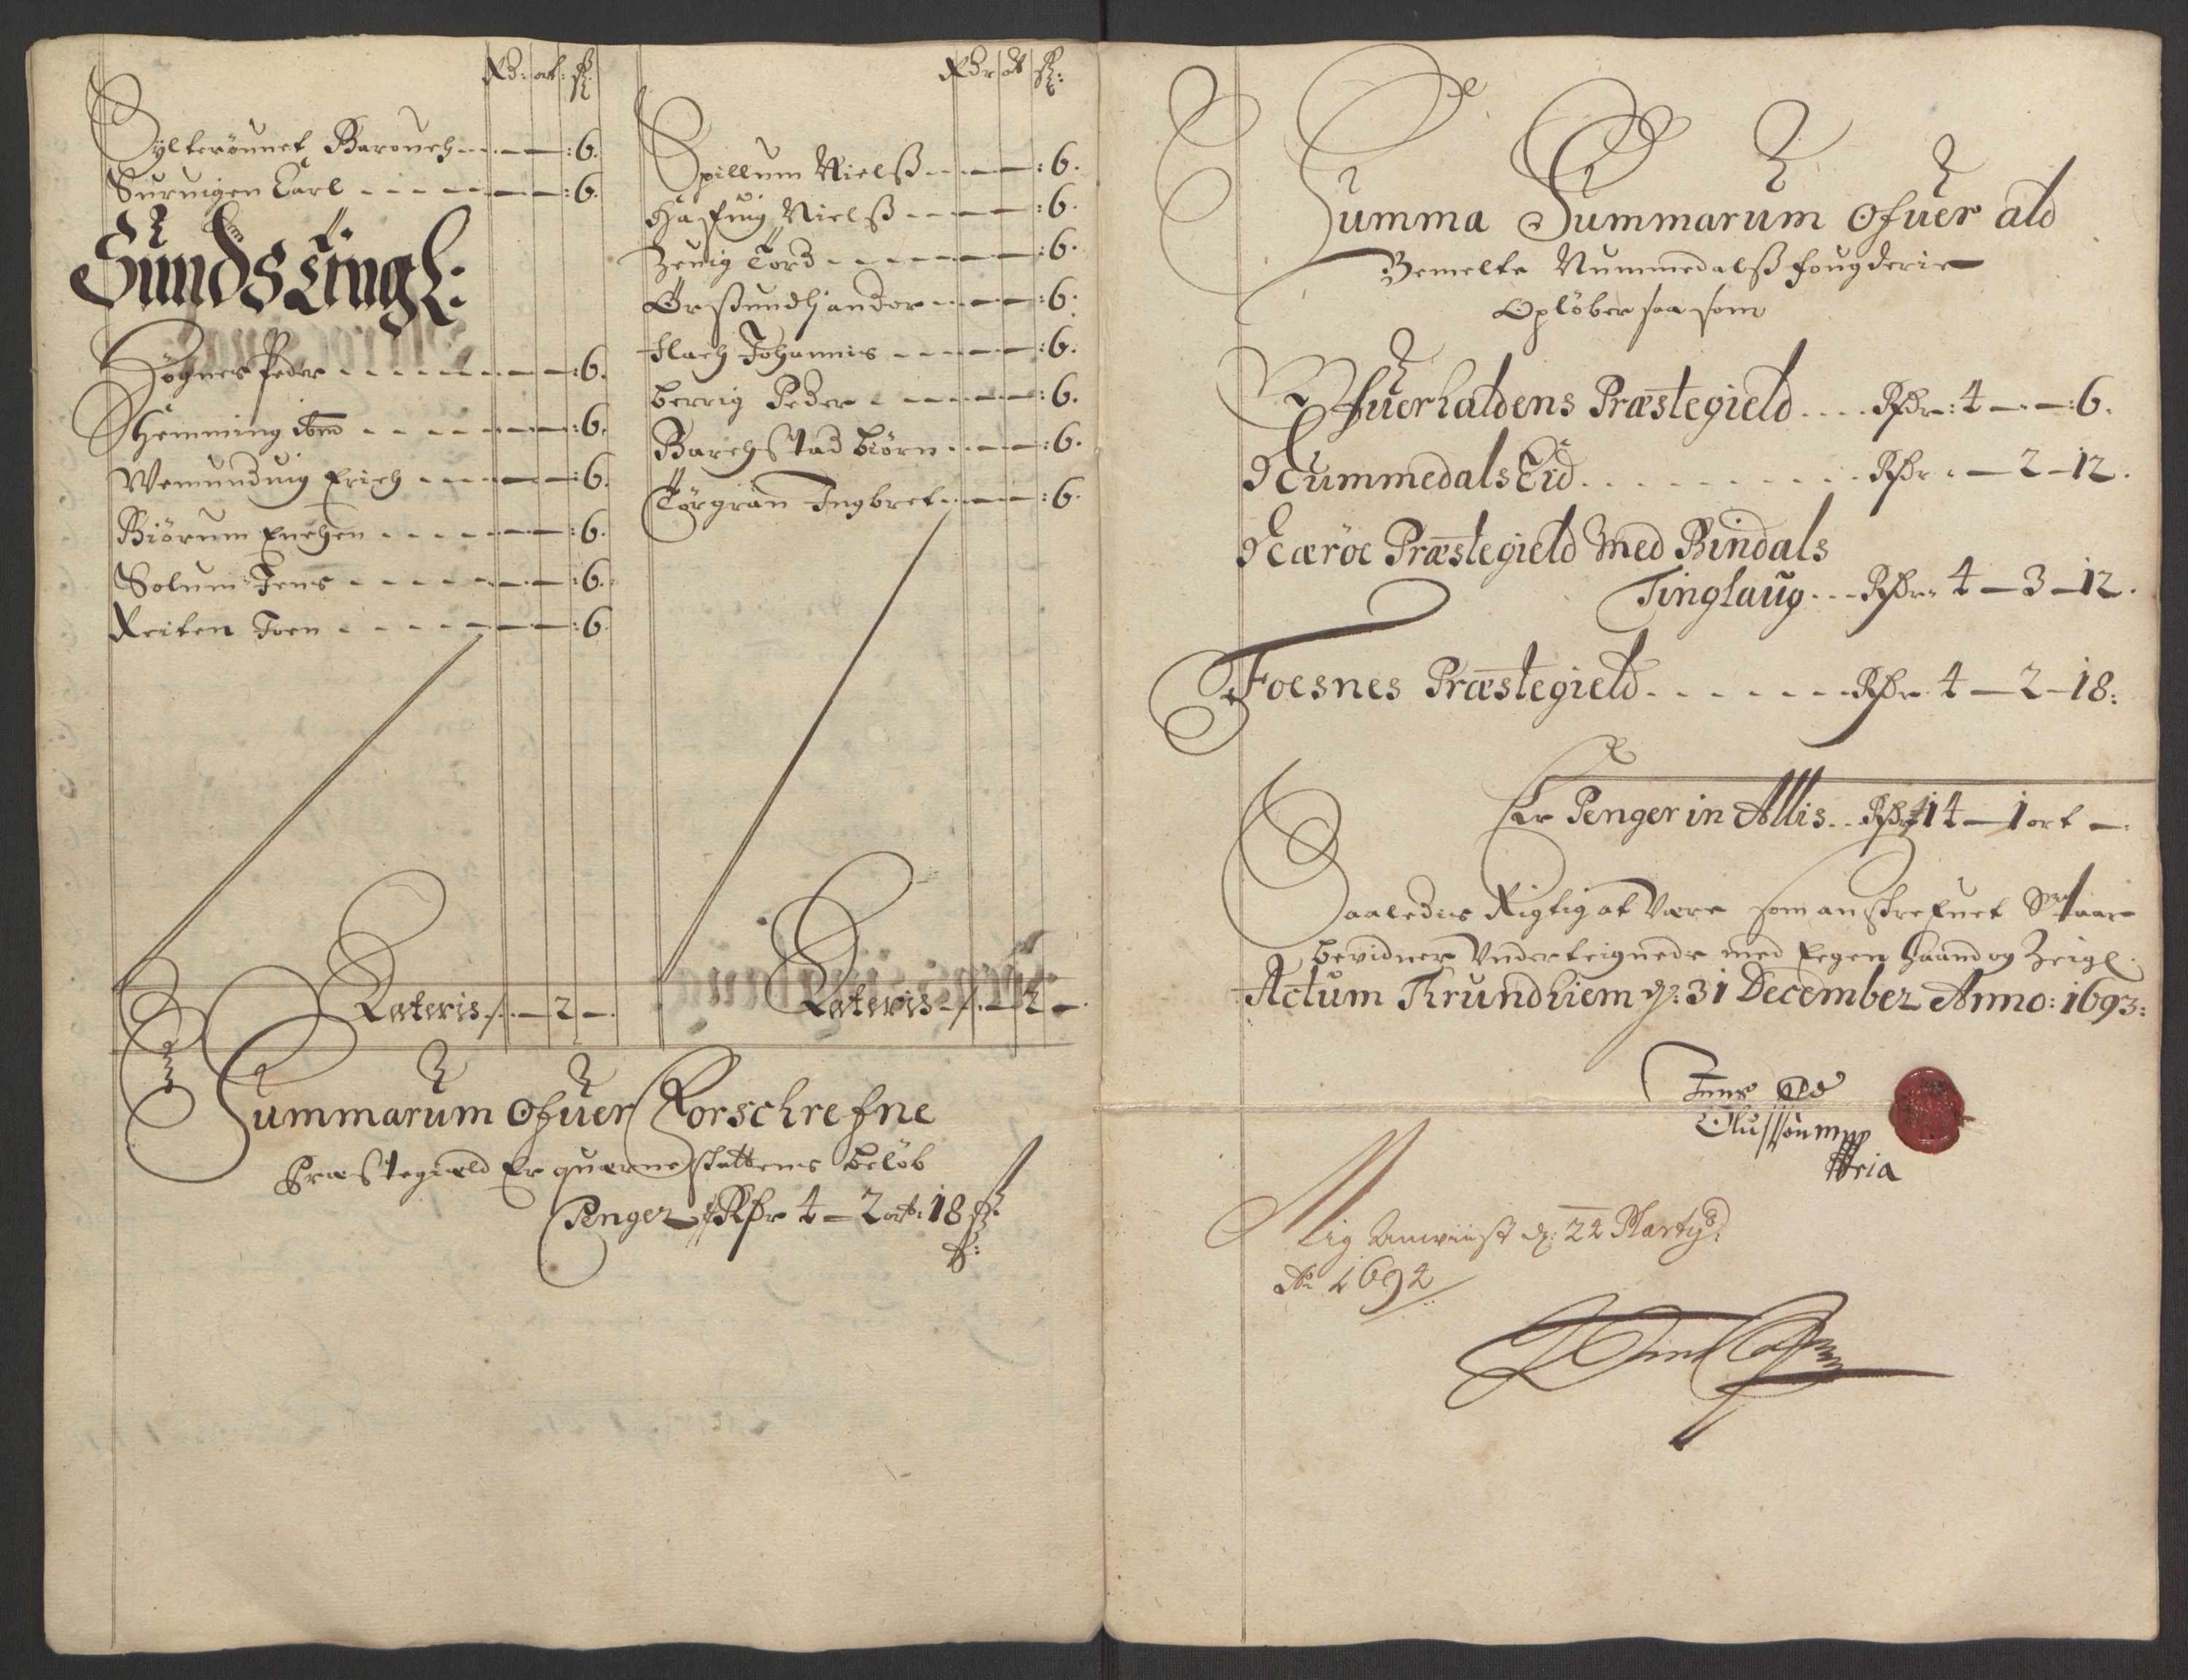 Rd: ort: ß
Sylterönnet Barouch - - - - :6.
Suruigen Carl - - - - :6.
Sunds Tingl:
Högnes Peder - - - - :6.
Hemming ibm - - - - :6.
Wemunduig Erich - - - - :6.
Biörum Enchen - - - - :6.
Solum Jens - - - - :6.
Reiten Joen - - - - :6.
Lateris - /. — 2 —.
Rdr ort ß:
Spillum Nielß - - - - :6.
Hasfuig Nielß - - - - :6.
Zeuig Tord - - - - :6.
Örsundh - - - - :6.
Flach Johannis - - - - :6.
Berrig Peder - - - - :6.
Barchstad Biörn - - - - :6.
Törgran Ingbret - - - - :6.
Lateris - /. — 2 —.
Summarum Ofuer Forschrefne
Præstegield Er quærne skattens Beløb
Penger Rdr 4 — 2 ort: 18 ß
Summa Summarum Ofuer ald
Bemelte Nummedalß fougderie
Opløber saa som
Ofuerhaldens Præstegield . . . . Rdr: 4 — — :6.
Nummedals Eid . . . . . . . . . Rdr: — 2 — 12.
Næröe Præstegield Med Bindals
Tinglaug . . . Rdr: 4 — 3 — 12.
Foesnes Præstegield . . . . . . . Rdr 4 — 2 — 18:
Er Penger in Allis . . Rdr 14 — 1 ort —:
Saaledis Rigtig at Være som anskrefuet Staar
Bevidner Underteignede med Egen Haand og Zeigl.
Actum Trundhiem d: 31 December Anno: 1693:
Jens
Olussön mp
pria
Mig Anwiist d: 24 Marty
Ao 1694